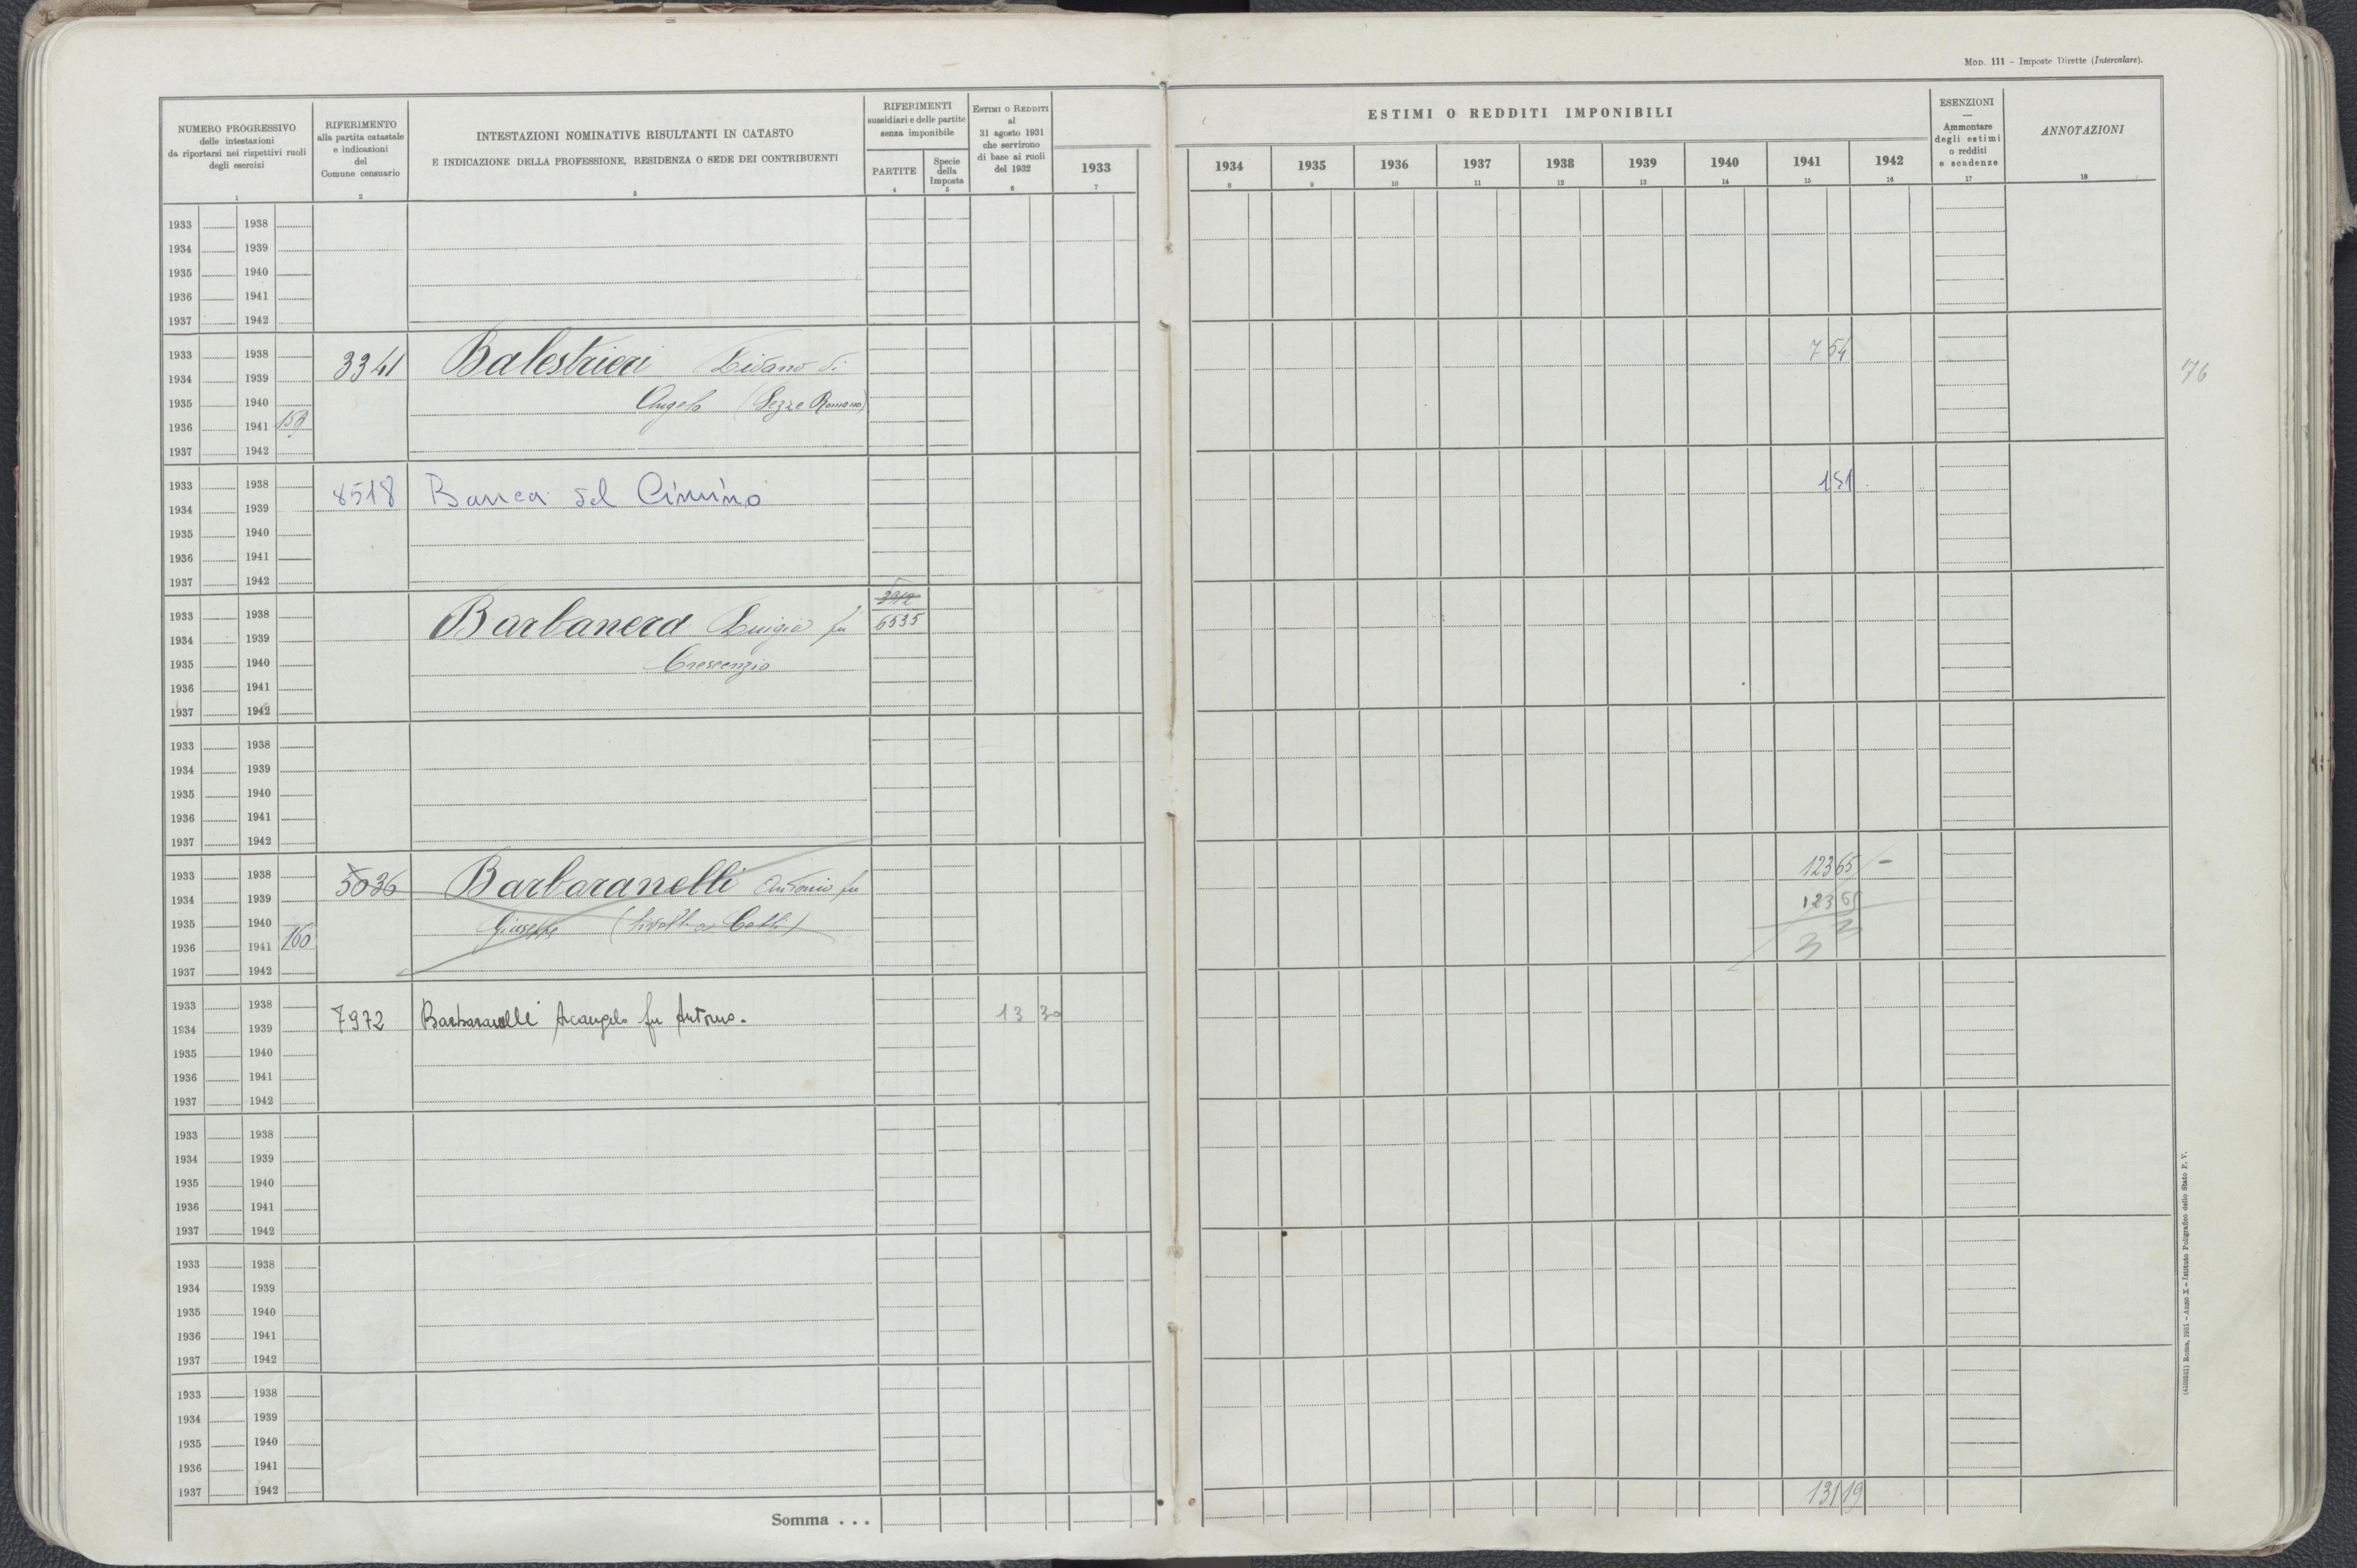 MOD. 111 – Imposte Dirette (Intercalare).
NUMERO PROGRESSIVO
delle intestazioni
da riportarsi nei rispettivi ruoli
degli esercizi
1
RIFERIMENTO
alla partita catastale
e indicazioni
del
Comune censuario
2
INTESTAZIONI NOMINATIVE RISULTANTI IN CATASTO
E INDICAZIONE DELLA PROFESSIONE, RESIDENZA O SEDE DEI CONTRIBUENTI
3
RIFERIMENTI
sussidiari e delle partite
senza imponibile
PARTITE
4
Specie
della
Imposta
5
ESTIMI O REDDITI
al
31 agosto 1931
che servirono
di base ai ruoli
del 1932
6
ESTIMI O REDDITI IMPONIBILI
1933 1934 1935 1936 1937 1938 1939 1940 1941 1942
7 8 9 10 11 12 13 14 15 16
ESENZIONI
—
Ammontare
degli estimi
o redditi
e scadenze
17
ANNOTAZIONI
18
1933 1938
1934 1939
1935 1940
1936 1941
1937 1942
1933 1938
3341 Balestrieri Lidano di 7 54
1934 1939
76
1935 1940
Angelo (Sezze Romano)
1936 1941 159
1937 1942
1933 1938
8518 Banca del Cimino 151
1934 1939
1935 1940
1936 1941
1937 1942
3912
1933 1938
Barbanera Luigia fu 6535
1934 1939
1935 1940
Crescenzio
1936 1941
1937 1942
1933 1938
1934 1939
1935 1940
1936 1941
1937 1942
1933 1938
5036 Barbaranelli Antonio fu 123 65 –
1934 1939
123 65
1935 1940
Giuseppe
1936 1941 160
1937 1942
1933 1938
7972 Barbaranelli Arcangelo fu Antonio. 13 30
1934 1939
1935 1940
1936 1941
1937 1942
1933 1938
1934 1939
1935 1940
1936 1941
1937 1942
1933 1938
1934 1939
1935 1940
1936 1941
1937 1942
1933 1938
1934 1939
1935 1940
1936 1941
1937 1942
131 19
Somma . . .
Roma, 1931 – Anno X – Istituto Poligrafico dello Stato P. V.